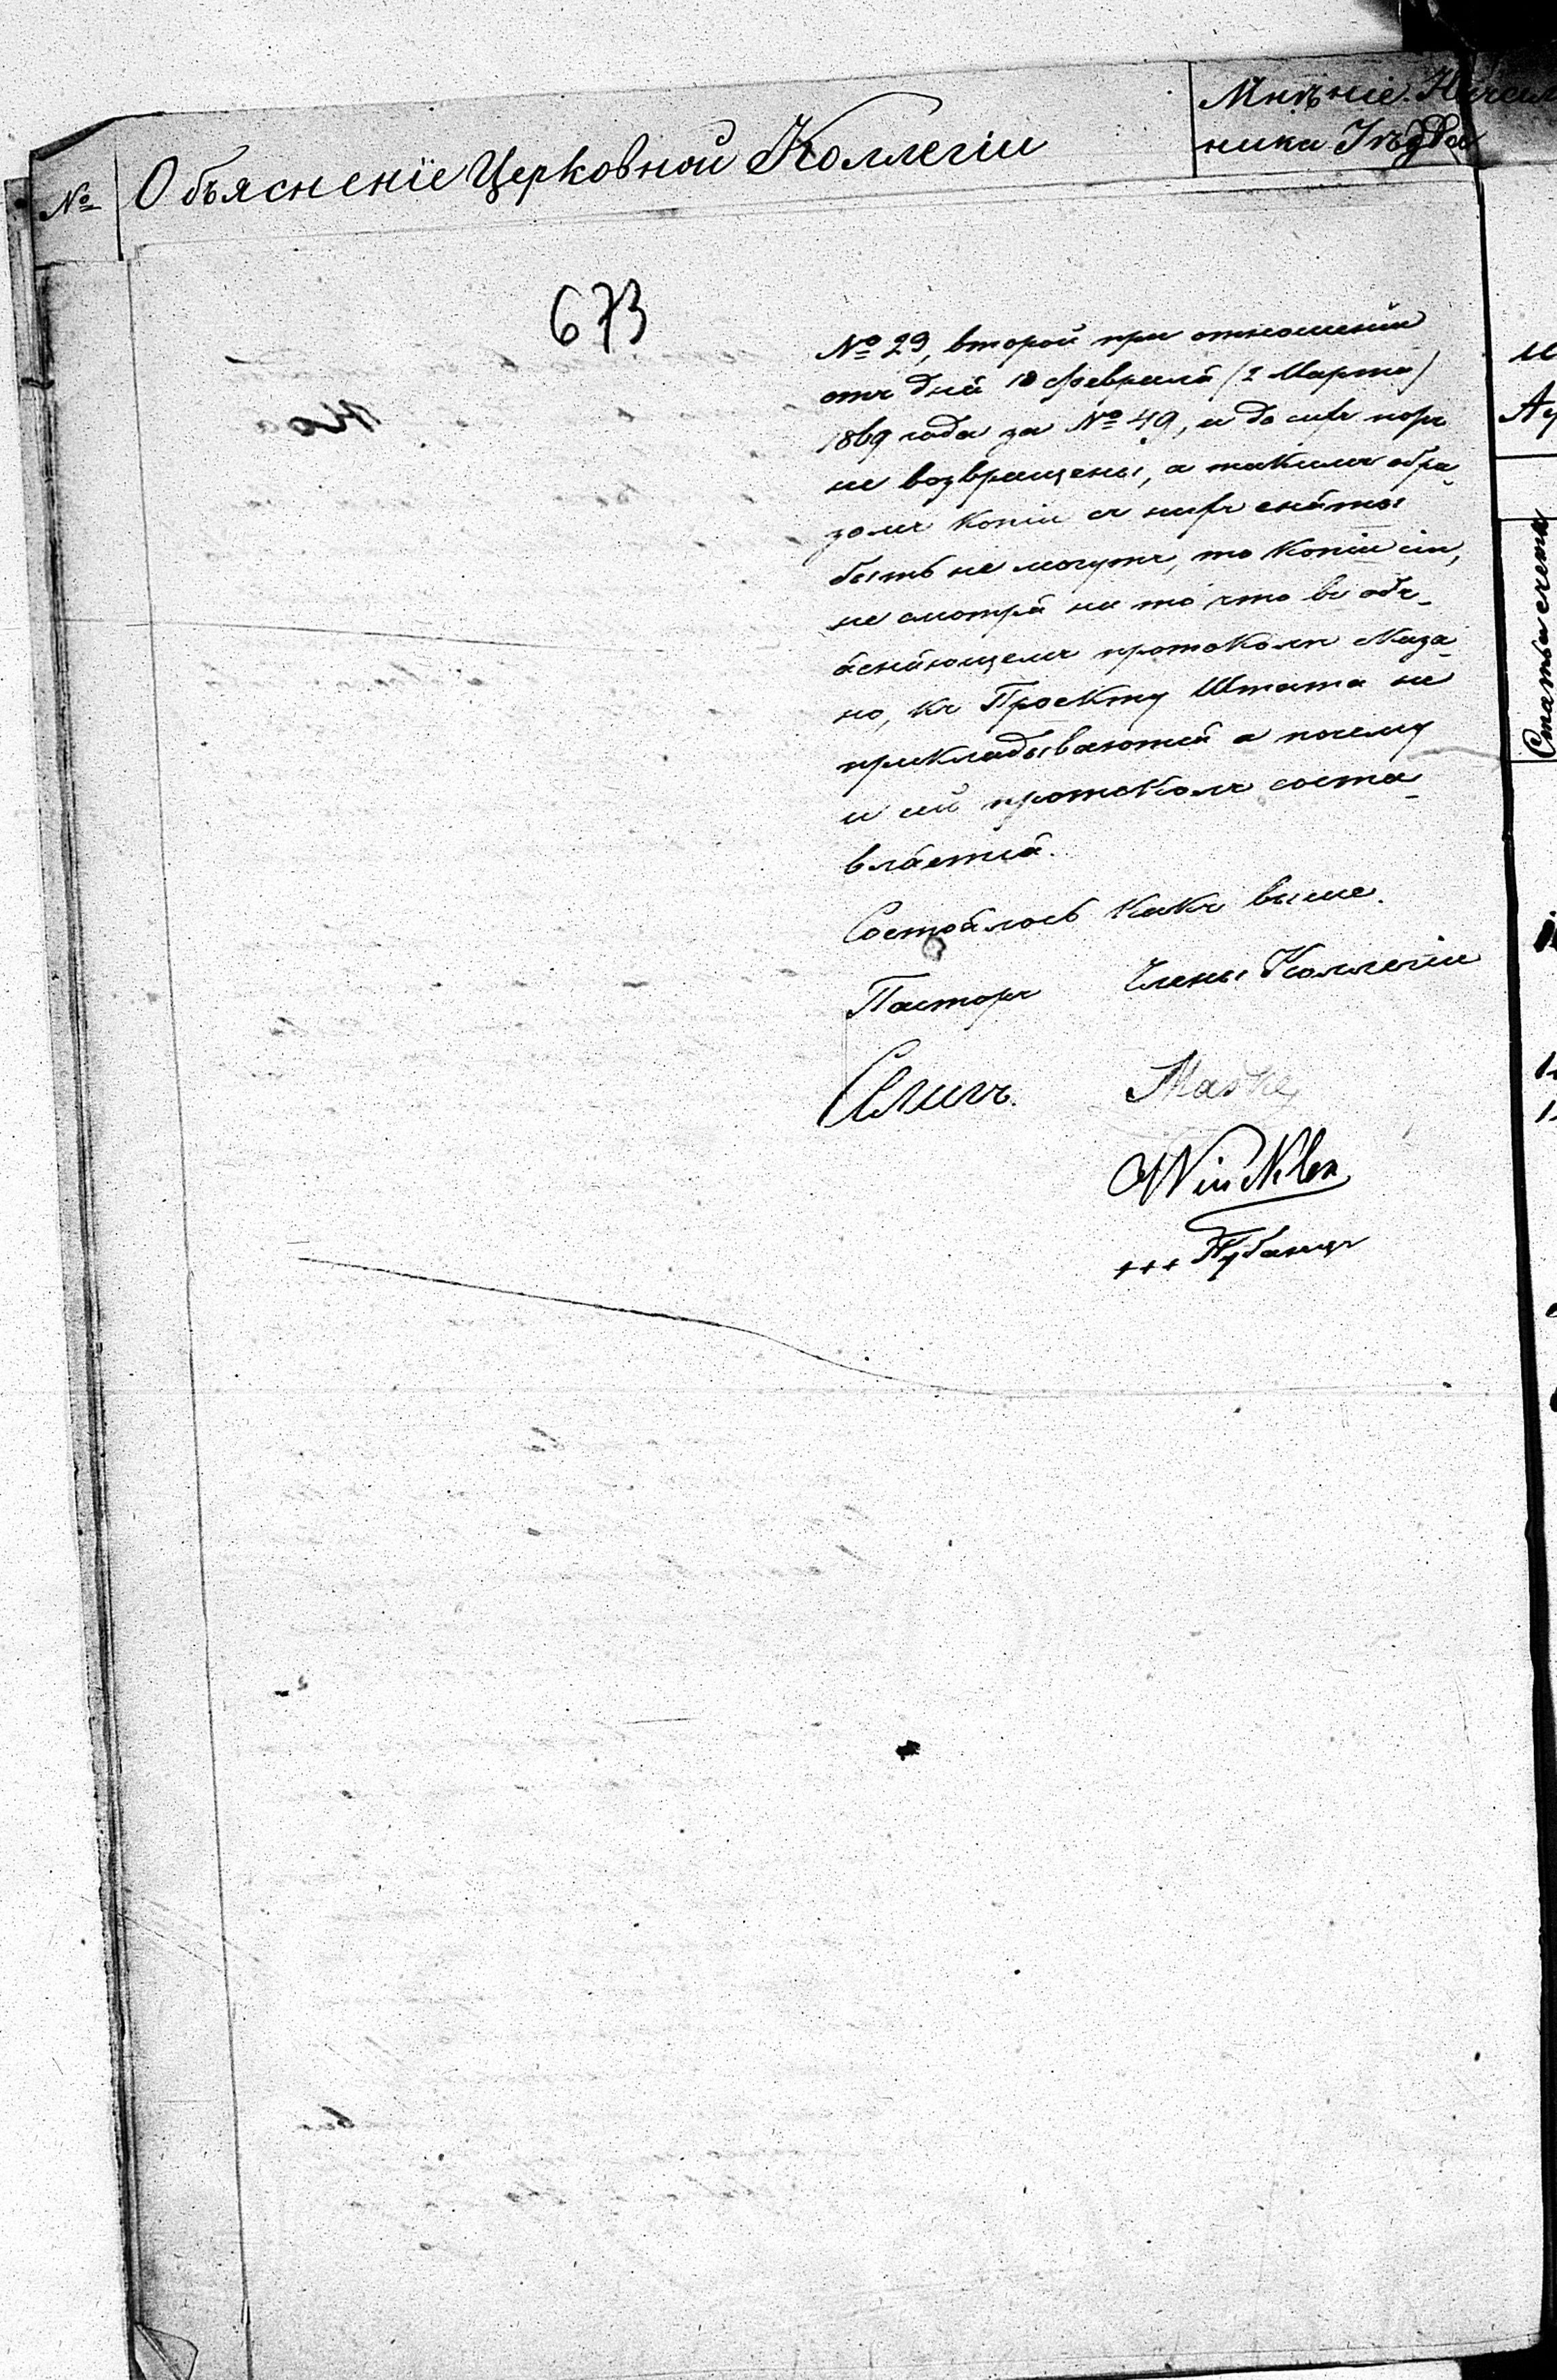 № Объясненіе Церковной Коллегіи
Мнѣніе Началь
ника Уѣзда
673
№ 29, второй при отношеніи
отъ дня 18 Февраля (2 Марта)
1869 года за № 49, и до сихъ поръ
не возвращены, а такимъ обра-
зомъ копіи съ нихъ сняты
быть не могутъ, то копіи сіи,
не смотря на то что въ объ-
ясняющемъ протоколѣ сказа-
но, къ Проекту Штата не
прикладываются а почему
и сей протоколъ соста-
вляется.
Состоялось какъ выше.
Пасторъ Члены Коллегіи
Winckler
+++
Статьи счета